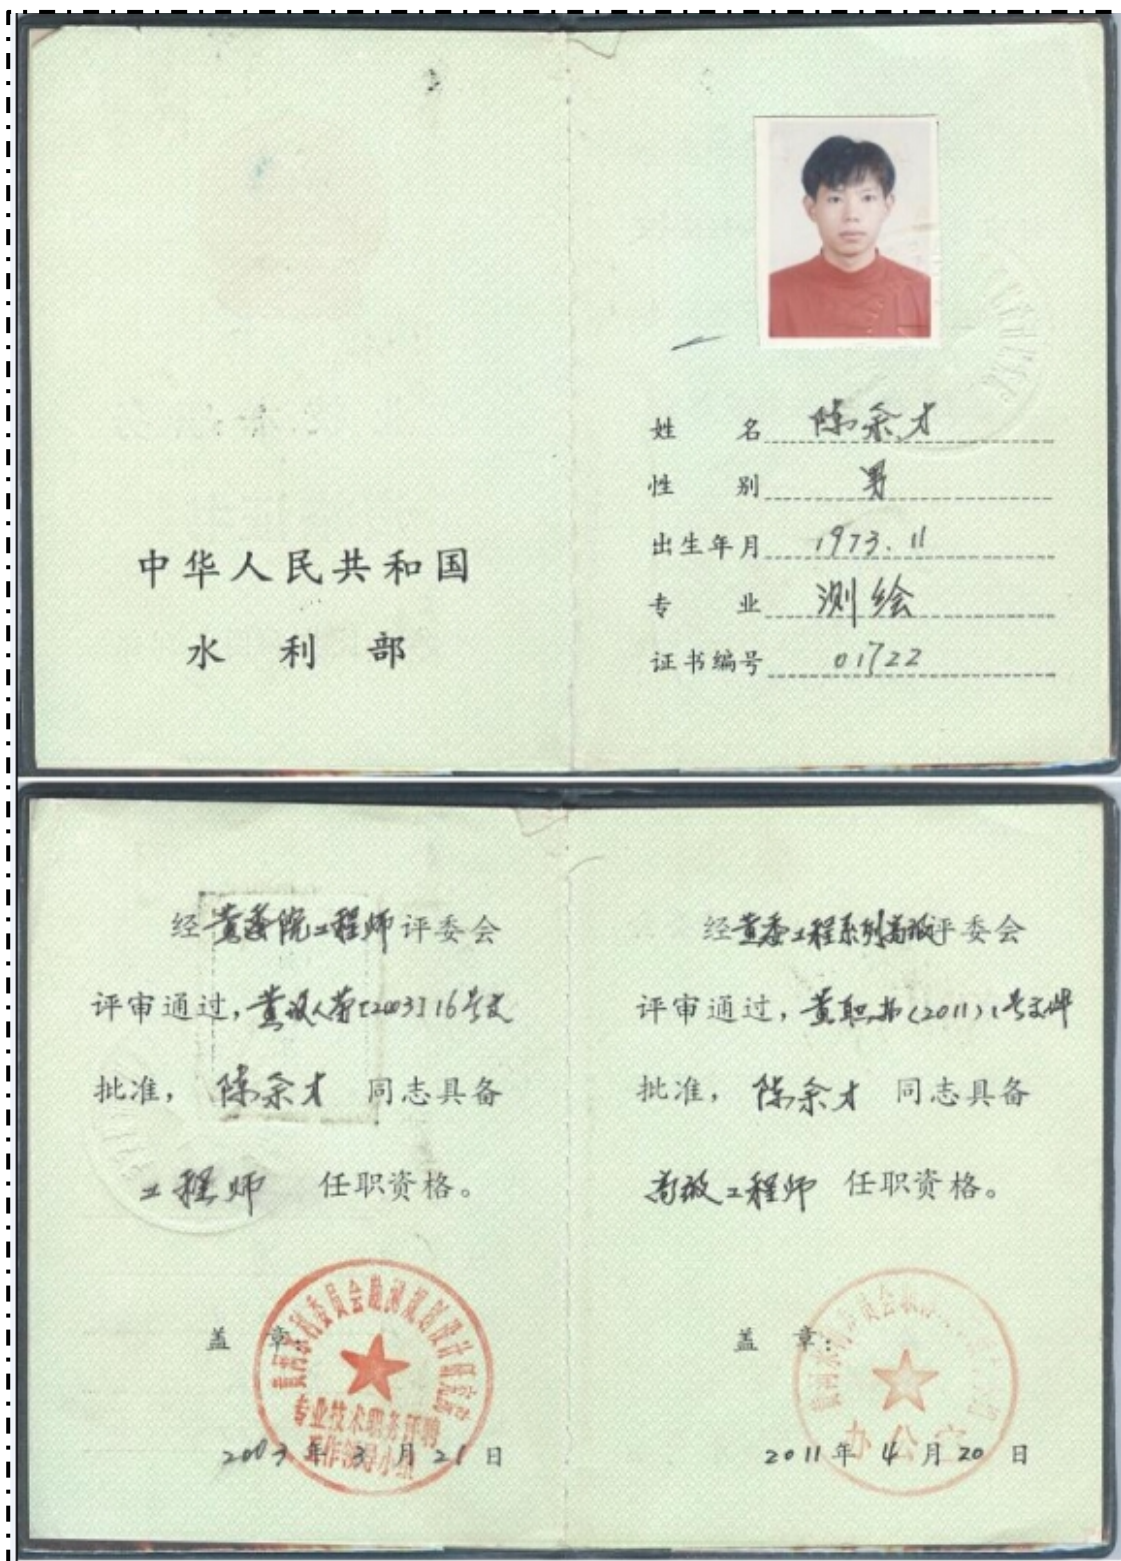 中华人民共和国
水利部
姓名 陈余才
性别 男
出生年月 1973.11
专业 测绘
证书编号 01722
经黄委院工程师评委会
评审通过,黄设人劳[2003]16号文
批准, 陈余才 同志具备
工程师 任职资格。
盖章:
黄河水利委员会勘测规划设计研究院
专业技术职务评聘
工作领导小组
2003年3月21日
经黄委工程系列高级评委会
评审通过,黄职 (2011)1号文
批准, 陈余才 同志具备
高级工程师 任职资格。
盖章:
黄河水利委员会职
办公室
2011年4月20日